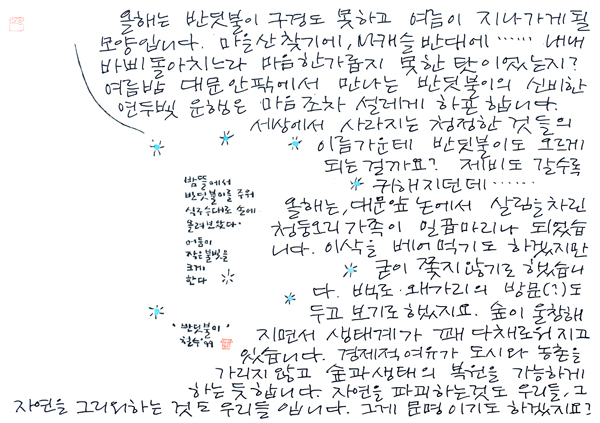 올해는 반딧불이 구경도 못하고 여름이 지나가게 될
모양입니다. 마을산 찾기에, M캐슬 반대에…… 내내
바삐 돌아치느라 마음 한가롭지 못한 탓이었는지?
여름밤 대문 안팎에서 만나는 반딧불이의 신비한
연두빛 운행은 마음조차 설레게 하곤 합니다.
세상에서 사라지는 청정한 것들의
이름 가운데 반딧불이도 오르게
되는 걸까요? 제비도 갈수록
귀해지던데……
올해는, 대문앞 논에서 살림을 차린
청둥오리 가족이 일곱마리나 되었습
니다. 이삭을 베어먹기도 하겠지만
굳이 쫓지 않기로 했습니
다. 백로·왜가리의 방문(?)도
두고 보기로 했지요. 숲이 울창해
지면서 생태계가 꽤 다채로워지고
있습니다. 경제적 여유가 도시와 농촌을
가리지 않고 숲과 생태의 복원을 가능하게
하는 듯 합니다. 자연을 파괴하는 것도 우리들, 그
자연을 그리워하는 것도 우리들 입니다. 그게 문명이기도 하겠지요?
밤뜰에서
반딧불이를 주워
식구수대로 손에
올려보았다.
어둠이
작은불빛을
크게
한다
"반딧불이"
철수 '99